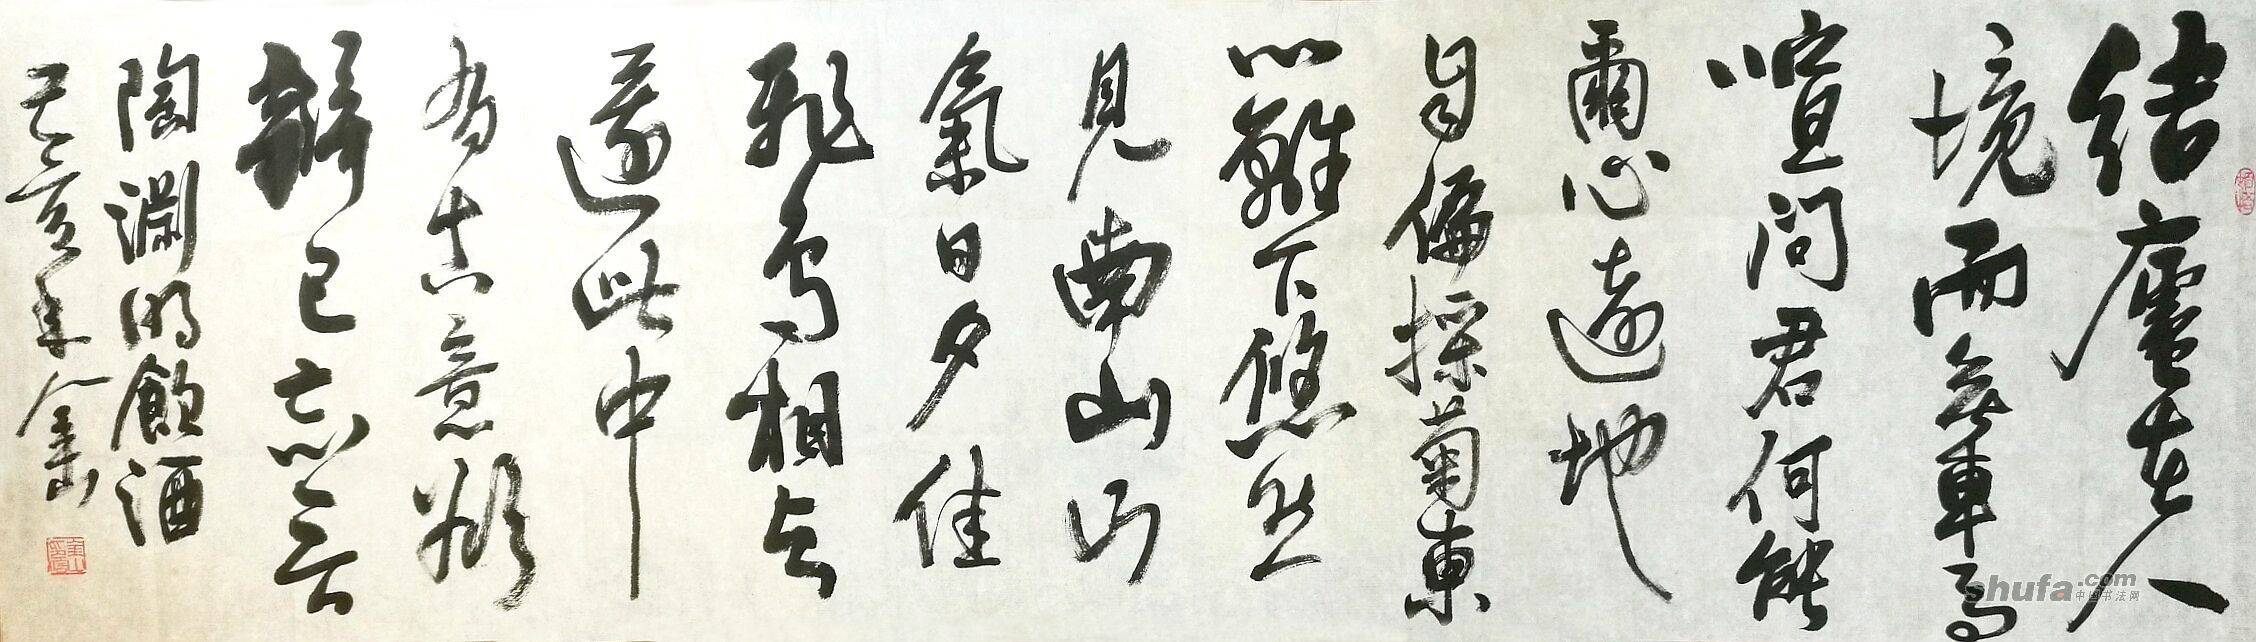 結廬在人
境而無車馬
喧問君何能
爾心遠地
自偏採菊東
籬下悠然
見南山山
氣日夕佳
飛鳥相与
還此中
有真意欲
辯已忘言
陶淵明飲酒
己亥年金山
shufa.com
中国书法网